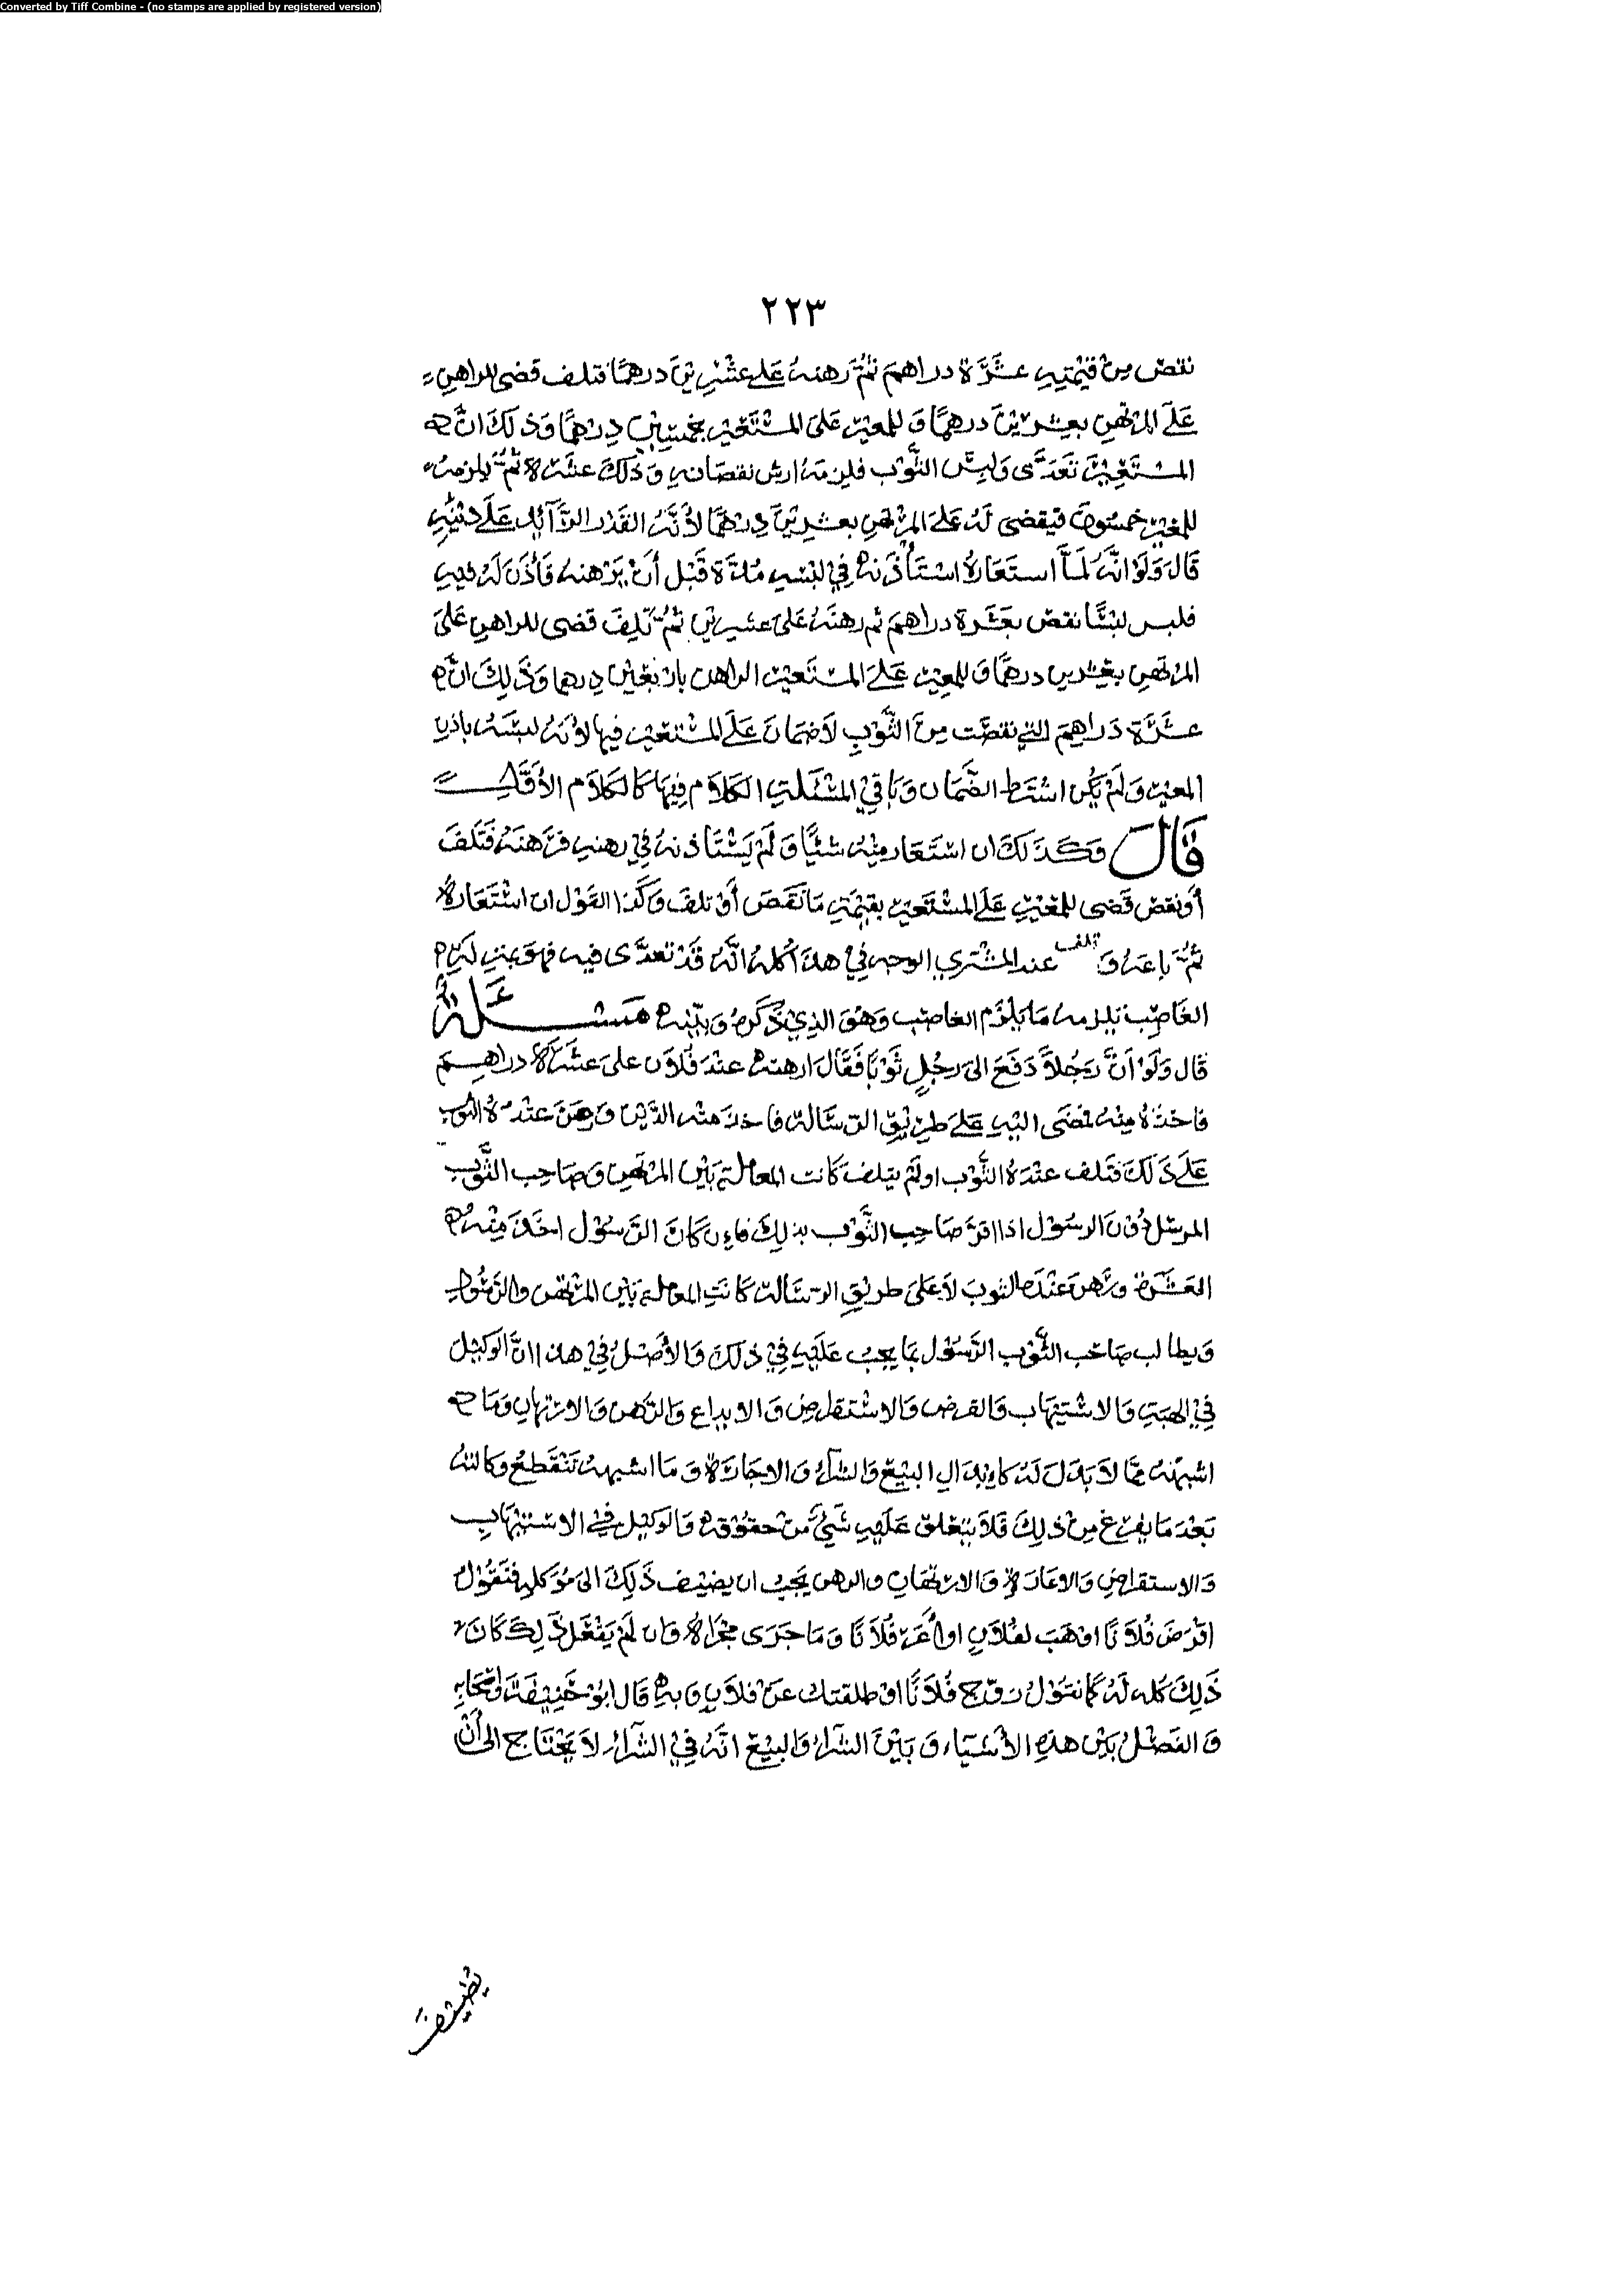 Converted by Tiff Combine - (no stamps are applied by registered version)
٢٢٣
نقص مِنْ قيمَتِهِ عشَرَة دراهمَ ثمَّ رهنهُ عَلى عشْرِينَ درهمًا فتلف قضى للراهِنِ
عَلَى المرْتَهِنِ بعِشرينَ درهمًا وَ للمعيْرِ عَلىَ المسْتَعَيْرِ بخمسِيْنِ دِرْهمًا وَذلكَ انَّ
المسْتَعِيْرَ تعَدَّى وَلبِسَ الثَّوْبَ فلزمَهُ ارش نقصَانهِ وَ ذلكَ عشَرَة ثمَّ يلزمهُ
للمغيْرِ خمسُونَ فيقضى لهُ عَلىَ المرْتهِنِ بعشرِينَ دِرْهمًا لأنَّهُ القَدْرُ الزَّآئِدُ عَلَى دَيْنِهِ
قَالَ وَلَوْ انَّهُ لمَّا استعَارهُ اسْتَأْذَنهُ فِيْ لبْسِهِ مُدَّة قَبْل أنْ يَرْهنهُ فَأذنَ لَهُ فيهِ
فلبس لبْسًا نقصَ بعَشَرة دراهِمَ ثم رهنَهُ عَلىَ عشرينِ ثمَّ تَلِفَ قضى للراهنِ عَلىَ
المرْتَهِنِ بعِشرينِ درهمًا وَ للمعِيْرِ عَلىَ المسْتَعيْرِ الراهن باربَعَيْنِ دِرهما وَذَلِكَ انَّ
عشَرَة دَراهِمَ التي نقصَت مِنَ الثَّوْبِ لاَضمَانَ عَلَى المسْتعَيْرِ فيها لأنَهُ لبسَهُ باذنِ
المعيْر وَ لَمْ يَكُن اشتَرط الضَّمَان وَ بَاقِيْ المسْئَلَةِ الكَلاَم فِيهَا كَالكَلاَم الأوَّلِ
قَالَ وَكَذَلكَ ان اسْتَعَار مِنْهُ شيئًا وَ لَمْ يَسْتَأذنهُ فِيْ رهنهِ فرَهنَهُ فَتَلَفَ
أونقص قَضى للمُعَيْرِ عَلى المسْتَعيْرِ بقِيْمَةِ مَانَقَصَ أوْ تلفَ وَ كَذا القَوْل ان اسْتعَارهُ
ثمَّ باعَهُ وَ تلف عند المشْتَرِي الوجه فِيْ هذا كلهُ انَّهُ قَدْ تعدَّى فيه فهوَ بمنزِلَةِ
الغَاصِبِ يلزمهُ مَا يلزَم الغاصِبَ وَهُوَ الذِيْ ذكَرهُ وَبيَّنهُ مَسْئَلَة
قَال وَلَوْ أنَّ رَجُلاً دَفَعَ الىَ رَجُلٍ ثَوْبًا فَقَالَ ارهنهُ عندَ فُلاَن علىَ عشَرَة دراهِمَ
فاخذَهُ مِنْهُ فمضَى اليْهِ عَلَى طرِيْقِ الرّسَالةِ فاخذَ منْهُ الدَّيْن وَ رَهَنَ عنْدَهُ الثوبَ
عَلىَ ذَلكَ فَتَلف عنْدَهُ الثَّوْب اولَمْ يتلف كَانت المعاملة بَيْنَ المرْتَهِنِ وَصَاحِبِ الثَّوْبِ
المرسِل دُوْنَ الرسُوْل اذا اقرَّ صَاحِبُ الثَّوْب بذلِكَ فاءِن كَانَ الرَّسُوْل اخَذَ مِنْهُ
العَشَرَة وَ رَهنَ عنْدَهُ الثوبَ لاَ عَلىَ طريْقِ الرّسَالة كانَتِ المعاملة بَيْنَ المرْتَهنِ وَالرَّسُوْلِ
وَيطالب صَاحَب الثَّوْبِ الرَّسُوْل بمَا يجب عَلَيْهِ فِيْ ذلكَ وَالأَصْلُ فِيْ هذا انَّ الوَكيْلَ
فِيْ الهبَةِ وَالاسْتِيْهَابِ وَالقرض وَالاسْتقراضِ وَالايداع وَالرَّهن وَالارتهانِ وَمَا
اشبَهَهُ ممَّا لاَ بَدَلَ لَهُ كاءِبْدَال البَيْعِ وَالشرَآءُ وَالاجَارَة وَ مَا اشبهه تنقَطعُ وَكالتهُ
بَعْدَ مَا يفرغ مِنْ ذلِكَ فَلاَ يتعَلق عَلَيْهِ شَيْءٌ مِنْ حقوْقه وَالوكيْل فِي الاسْتيْهَابِ
وَالاستقراضِ وَالاعَارَة وَالارتهَانِ والرهن يَجِبُ ان يضيْف ذَلِكَ الىَ مُوَكلهِ فَتَقُوْل
اقرَضَ فُلاَنًا اوْهَبَ لفلاَنٍ اوْ أعَرَ فُلاَنًا وَ مَا جَرَى مجرَاهُ فَان لَمْ يَفْعَلْ ذَلِكَ كَانَ
ذَلِكَ كله لَهُ كَما نتَوُلُ زوّج فُلاَنًا اوْ طلقتك عَنْ فلاَنٍ وَ بهِ قَال ابُوْ حَنِيْفَةَ وَأصْحَابهِ
وَ الفَصْلُ بَيْن هذهِ الأَشْيَاءِ وَ بَيْنَ الشرَآءُ وَالبيْع انَّهُ فِيْ الشرَآءِ لاَ يَحْتَاج الى أنْ
يضيف